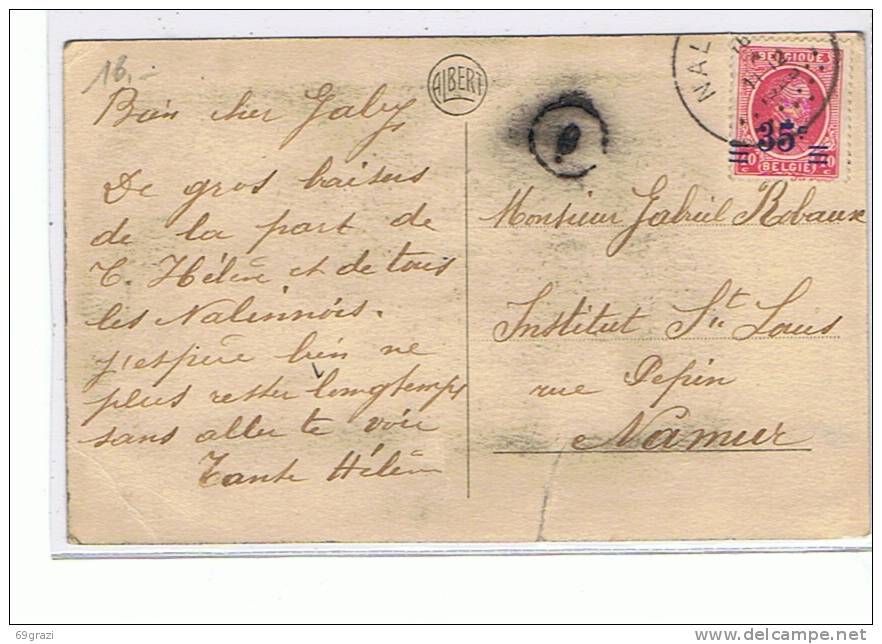 18.-
ALBERT
Bien cher Gaby
De gros baisers
de la part de
T. Hélène et de tous
les Nalinnois.
J'espère bien ne
plus rester longtemps
sans aller te voir
Tante Hélène
NAL
BELGIQUE
35c
BELGIË
Monsieur Gabriel Robaux
Institut St Louis
rue Pepin
Namur
69grazi
www.delcampe.net